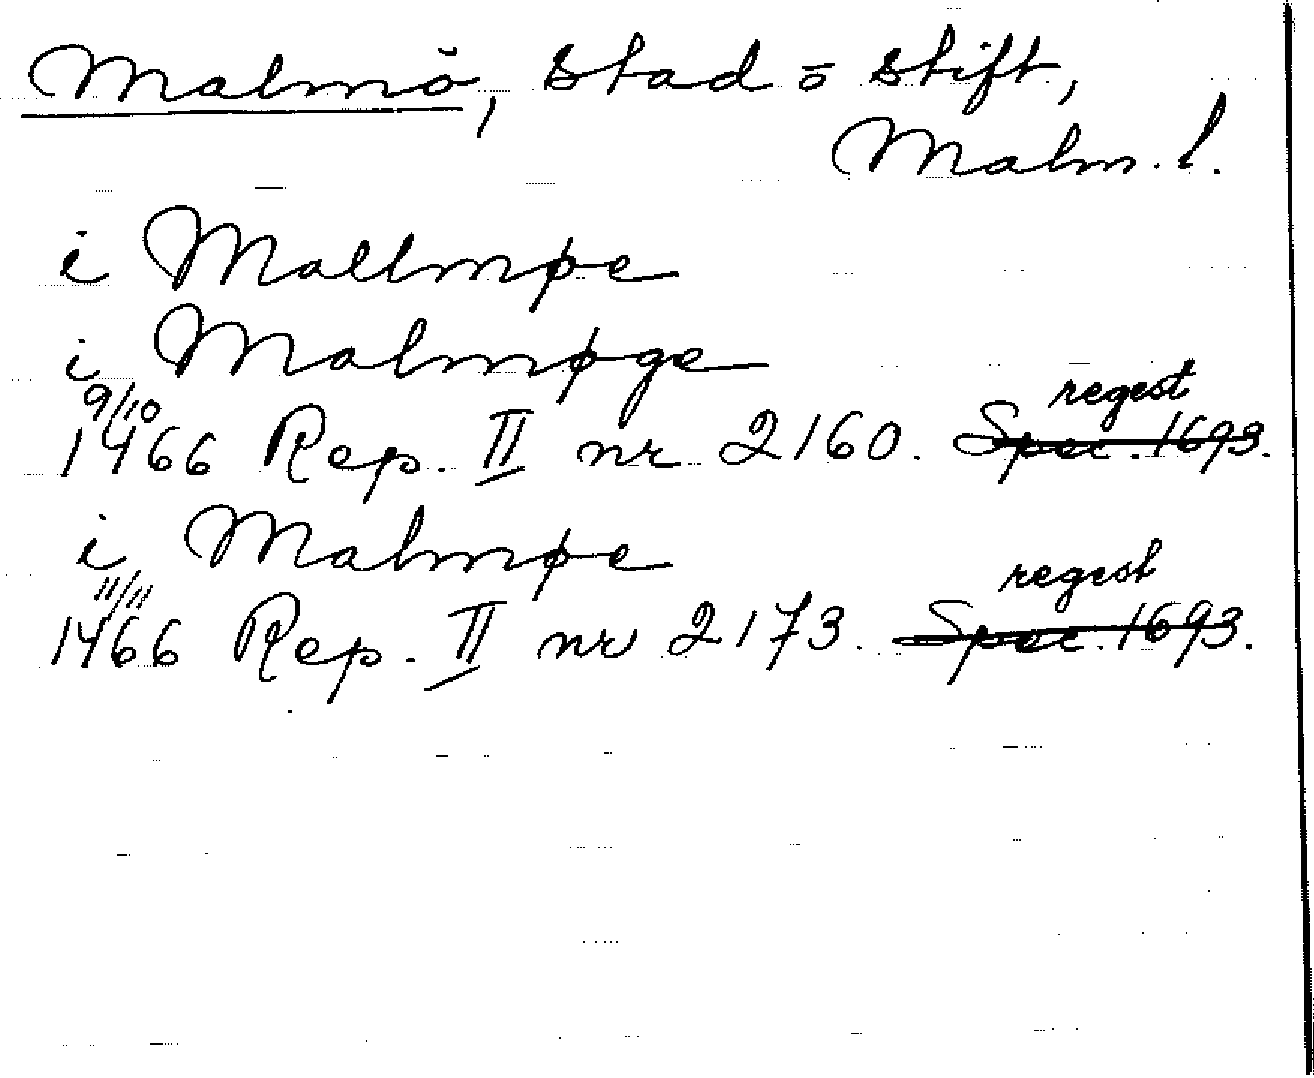 Malmö, stad o stift,
Malm. l.
i Mallmøe
i Malmøge
9/10
1466 Rep. II nr 2160. Spec. 1693. regest
i Malmøe
11/11
1466 Rep. II nr 2173. Spec. 1693. regest